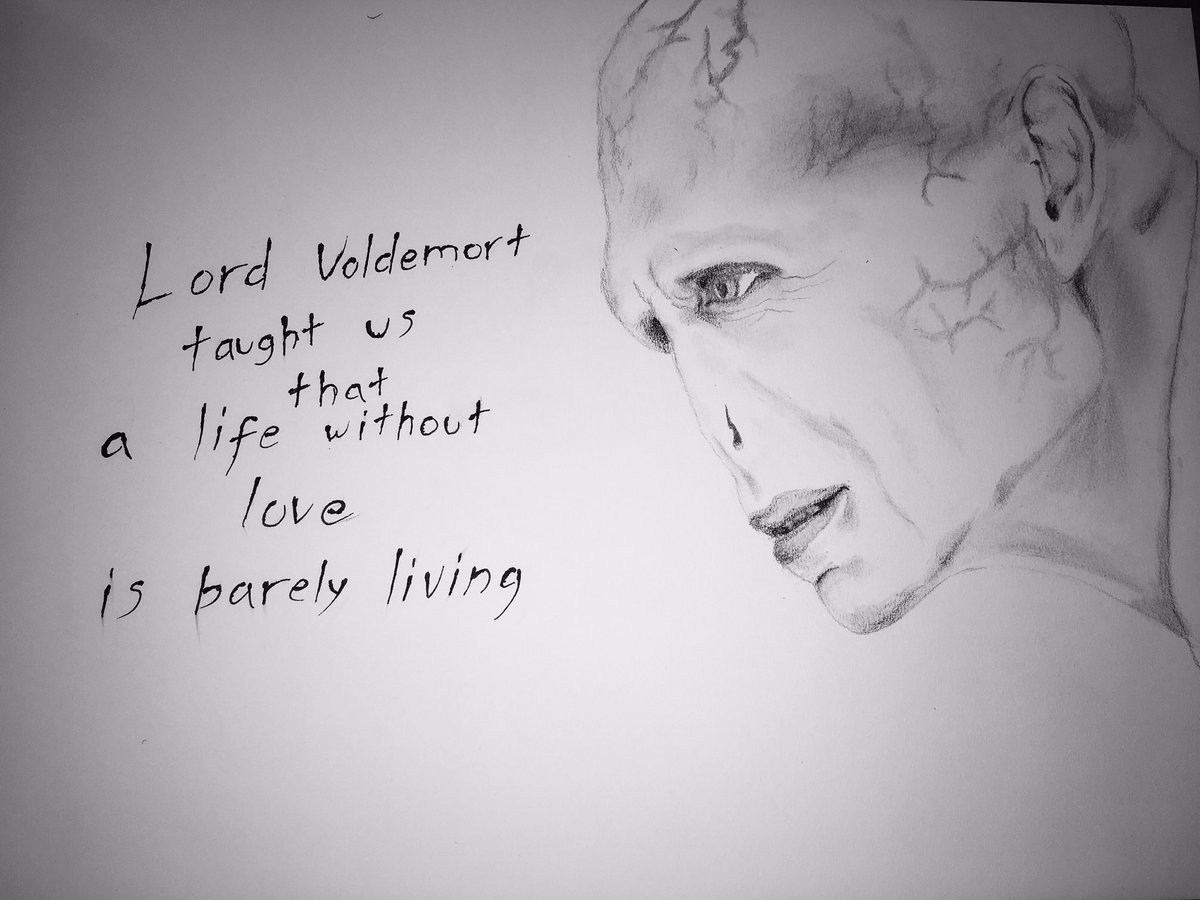 Lord Voldemort
taught us
that
a life without
love
is barely living